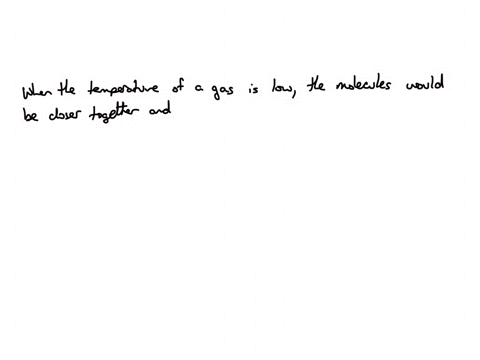 When the temperature of a gas is low, the molecules would
be closer together and